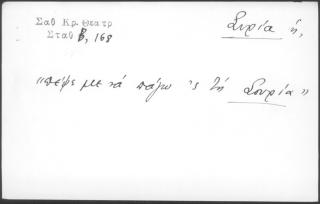 Σαθ Κρ. Θεατρ
Σταθ Β, 168
Συρία ἡ,
"πέψε με νά πάγω 'ς τή Σουρία"